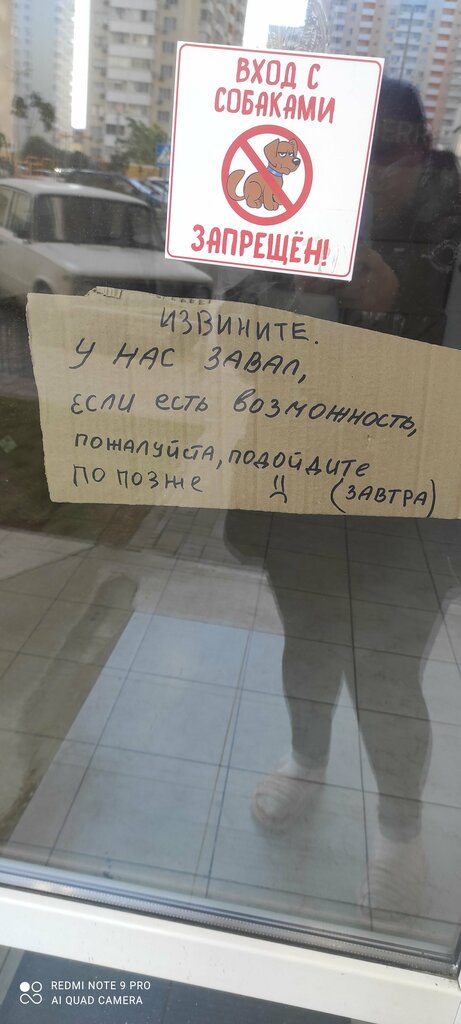 ВХОД С
СОБАКАМИ
ЗАПРЕЩЁН!
ИЗВИНИТЕ.
У НАС ЗАВАЛ,
ЕСЛИ ЕСТЬ ВОЗМОЖНОСТЬ,
ПОЖАЛУЙСТА, ПОДОЙДИТЕ
ПО ПОЗЖЕ :( (ЗАВТРА)
REDMI NOTE 9 PRO
AI QUAD CAMERA